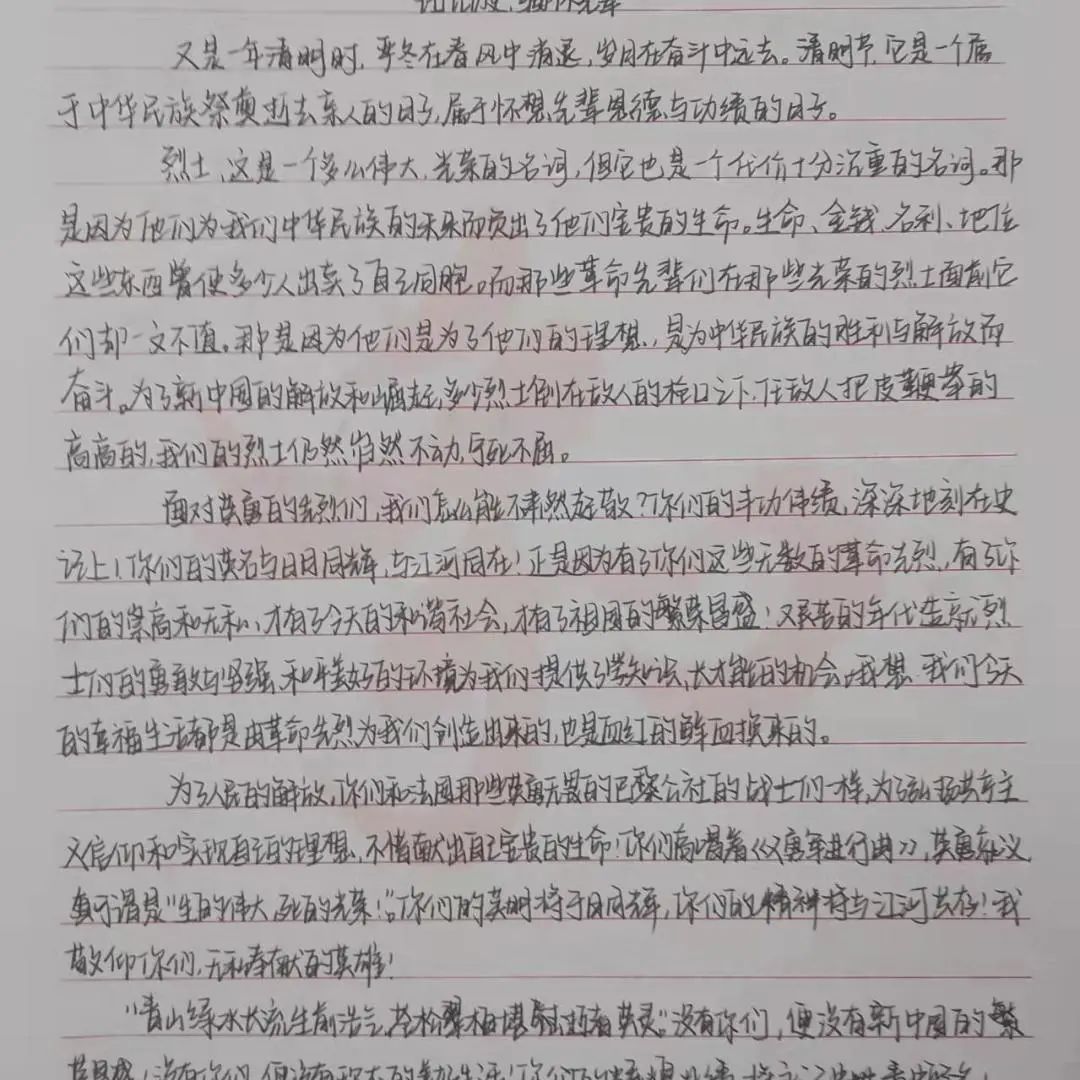 铭记历史,缅怀先辈
又是一年清明时,严冬在春风中消退,岁月在奋斗中远去。清明节,它是一个属
于中华民族祭奠逝去亲人的日子,属于怀想先辈恩德与功绩的日子。
烈士,这是一个多么伟大、光荣的名词,但它也是一个代价十分沉重的名词。那
是因为他们为我们中华民族的未来而贡出了他们宝贵的生命。生命、金钱、名利、地位
这些东西曾使多少人出卖了自己同胞。而那些革命先辈们在那些光荣的烈士面前它
们却一文不值。那是因为他们是为了他们的理想,是为中华民族的胜利与解放而
奋斗。为了新中国的解放和崛起,多少烈士倒在敌人的枪口之下,任敌人把皮鞭举的
高高的,我们的烈士仍然岿然不动,宁死不屈。
面对英勇的先烈们,我们怎么能不肃然起敬?你们的丰功伟绩,深深地刻在史
记上!你们的英名与日月同辉,与江河同在!正是因为有了你们这些无数的革命先烈,有了你
们的崇高和无私,才有了今天的和谐社会,才有了祖国的繁荣昌盛!艰苦的年代造就烈
士们的勇敢与坚强,和谐美好的环境为我们提供了学知识、长才能的机会。我想,我们今天
的幸福生活都是由革命先烈为我们创造出来的,也是血红的鲜血换来的。
为了人民的解放,你们和法国那些英勇无畏的巴黎公社的战士们一样,为了弘扬共产主
义信仰和实现自己的理想,不惜献出自己宝贵的生命!你们高唱着《义勇军进行曲》,英勇就义,
真可谓是“生的伟大,死的光荣!”。你们的英明将于日月同辉,你们的精神将与江河共存!我
敬仰你们,无私奉献的英雄!
“青山绿水长流生前浩气,苍松翠柏堪慰逝者英灵”没有你们,便没有新中国的繁
荣昌盛!没有你们,便没有现在的幸福生活!你们的